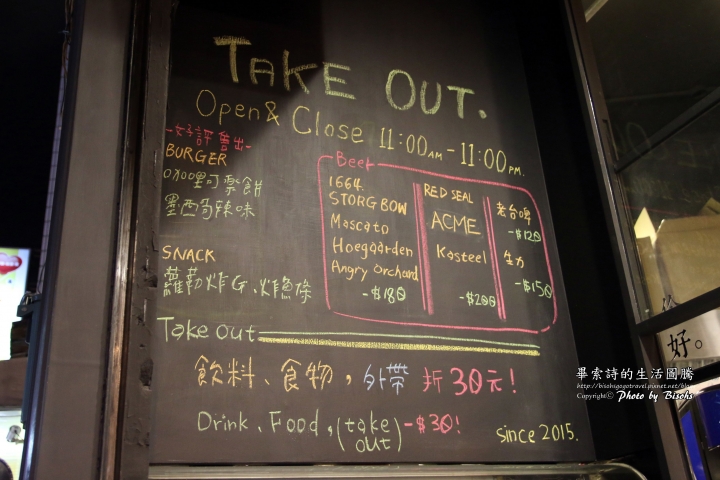 TAKE OUT.
Open & Close 11:00AM - 11:00PM.
-好評售出-
BURGER
咖哩可樂餅
墨西哥辣味
SNACK
蘿勒炸G、炸魚條
Beer
1664
STORG BOW
Moscato
Hoegaarden
Angry orchard
-$180
RED SEAL
ACME
Kasteel
-$200
老台啤
-$120
生力
-$150
Take out
飲料、食物，外帶 折30元!
Drink、Food,(take out)-$30!
since 2015.
好。
畢索詩的生活圖騰
Copyright© Photo by Bisohs